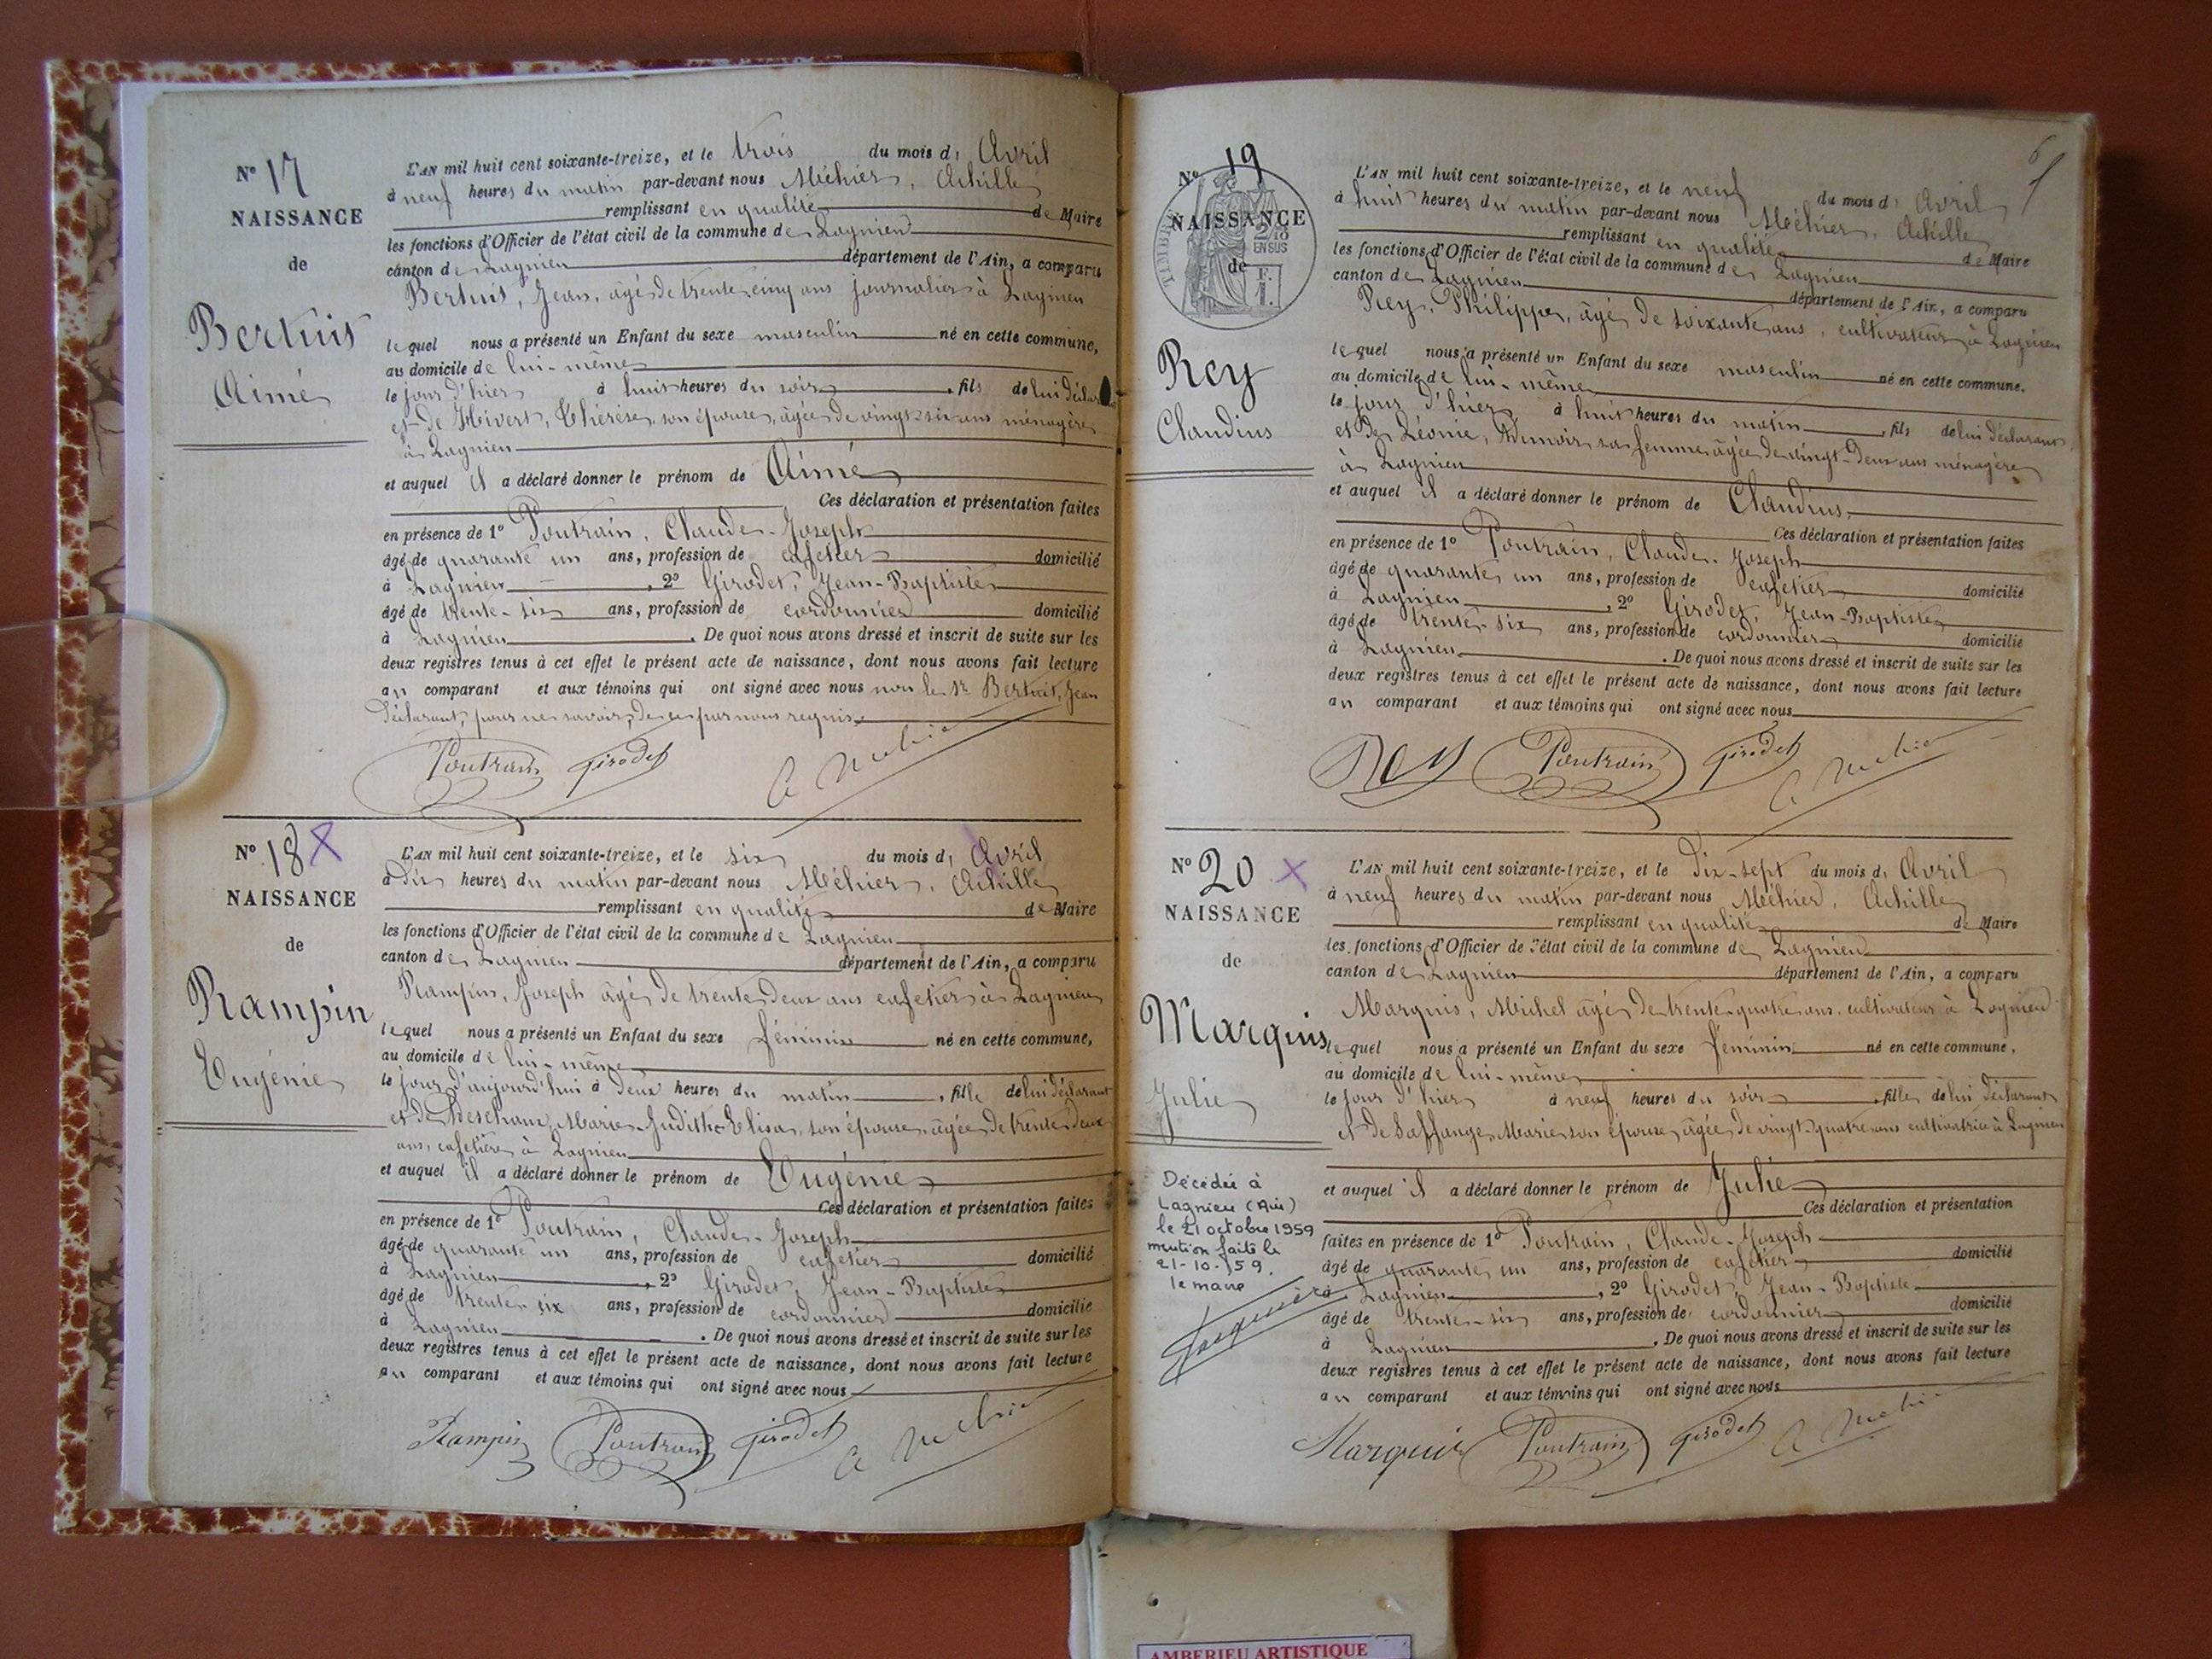 Nº 17
NAISSANCE
de
Bertuis
Aimé
L'AN mil huit cent soixante-treize, et le trois du mois d' Avril
à neuf heures du matin par-devant nous Méhier, Achille
remplissant en qualité de Maire
les fonctions d'Officier de l'état civil de la commune de Lagnieu
canton de Lagnieu département de l'Ain, a comparu
Bertuis, Jean, âgé de trente cinq ans journalier à Lagnieu
lequel nous a présenté un Enfant du sexe masculin né en cette commune,
au domicile de lui-même
le jour d'hier à huit heures du soir, fils de lui déclarant
et de Hivert, Thérèse, son épouse, âgée de vingt-six ans ménagère
à Lagnieu
et auquel il a déclaré donner le prénom de Aimé
Ces déclaration et présentation faites
en présence de 1º Poutrain, Claude-Joseph
âgé de quarante un ans, profession de cafetier domicilié
à Lagnieu, 2º Girodet, Jean-Baptiste
âgé de trente-six ans, profession de cordonnier domicilié
à Lagnieu. De quoi nous avons dressé et inscrit de suite sur les
deux registres tenus à cet effet le présent acte de naissance, dont nous avons fait lecture
au comparant et aux témoins qui ont signé avec nous non le Sr Bertuit, Jean
déclarant, pour ne savoir, de ce par nous requis.
Poutrain Girodet A Méhier
Nº 18 X
NAISSANCE
de
Rampin
Eugénie
L'AN mil huit cent soixante-treize, et le six du mois d' Avril
à dix heures du matin par-devant nous Méhier, Achille
remplissant en qualité de Maire
les fonctions d'Officier de l'état civil de la commune de Lagnieu
canton de Lagnieu département de l'Ain, a comparu
Rampin, Joseph âgé de trente deux ans cafetier à Lagnieu
lequel nous a présenté un Enfant du sexe féminin né en cette commune,
au domicile de lui-même
le jour d'aujourd'hui à deux heures du matin, fille de lui déclarant
et de Marie-Judith-Elisa, son épouse, âgée de trente deux
ans, cafetière à Lagnieu
et auquel il a déclaré donner le prénom de Eugénie
Ces déclaration et présentation faites
en présence de 1º Poutrain, Claude-Joseph
âgé de quarante un ans, profession de cafetier domicilié
à Lagnieu, 2º Girodet, Jean-Baptiste
âgé de trente six ans, profession de cordonnier domicilié
à Lagnieu. De quoi nous avons dressé et inscrit de suite sur les
deux registres tenus à cet effet le présent acte de naissance, dont nous avons fait lecture
au comparant et aux témoins qui ont signé avec nous
Rampin Poutrain Girodet A Méhier
6
Nº 19
NAISSANCE
de
Rey
Claudius
L'AN mil huit cent soixante-treize, et le neuf du mois d' Avril
à huit heures du matin par-devant nous Méhier, Achille
remplissant en qualité de Maire
les fonctions d'Officier de l'état civil de la commune de Lagnieu
canton de Lagnieu département de l'Ain, a comparu
Rey, Philippe, âgé de soixante ans, cultivateur à Lagnieu
lequel nous a présenté un Enfant du sexe masculin né en cette commune.
au domicile de lui-même
le jour d'hier à huit heures du matin, fils de lui déclarant
et de Léonie, sa femme âgée de vingt-deux ans ménagère
à Lagnieu
et auquel il a déclaré donner le prénom de Claudius
Ces déclaration et présentation faites
en présence de 1º Poutrain, Claude-Joseph
âgé de quarante un ans, profession de cafetier domicilié
à Lagnieu, 2º Girodet, Jean-Baptiste
âgé de trente-six ans, profession de cordonnier domicilié
à Lagnieu. De quoi nous avons dressé et inscrit de suite sur les
deux registres tenus à cet effet le présent acte de naissance, dont nous avons fait lecture
au comparant et aux témoins qui ont signé avec nous
Rey Poutrain Girodet A Méhier
Nº 20 X
NAISSANCE
de
Marquis
Julie
Décédée à
Lagnieu (Ain)
le 21 octobre 1959
mention faite le
21-10-59.
le maire
L'AN mil huit cent soixante-treize, et le dix-sept du mois d' Avril
à neuf heures du matin par-devant nous Méhier, Achille
remplissant en qualité de Maire
les fonctions d'Officier de l'état civil de la commune de Lagnieu
canton de Lagnieu département de l'Ain, a comparu
Marquis, Michel âgé de trente-quatre ans cultivateur à Lagnieu
lequel nous a présenté un Enfant du sexe féminin né en cette commune,
au domicile de lui-même
le jour d'hier à neuf heures du soir, fille de lui déclarant
et de Saffange, Marie son épouse, âgée de vingt-quatre ans cultivatrice à Lagnieu
et auquel il a déclaré donner le prénom de Julie
Ces déclaration et présentation
faites en présence de 1º Poutrain, Claude-Joseph
âgé de quarante un ans, profession de cafetier domicilié
à Lagnieu, 2º Girodet, Jean-Baptiste
âgé de trente-six ans, profession de cordonnier domicilié
à Lagnieu. De quoi nous avons dressé et inscrit de suite sur les
deux registres tenus à cet effet le présent acte de naissance, dont nous avons fait lecture
au comparant et aux témoins qui ont signé avec nous
Marquis Poutrain Girodet A Méhier
AMBERIEU ARTISTIQUE